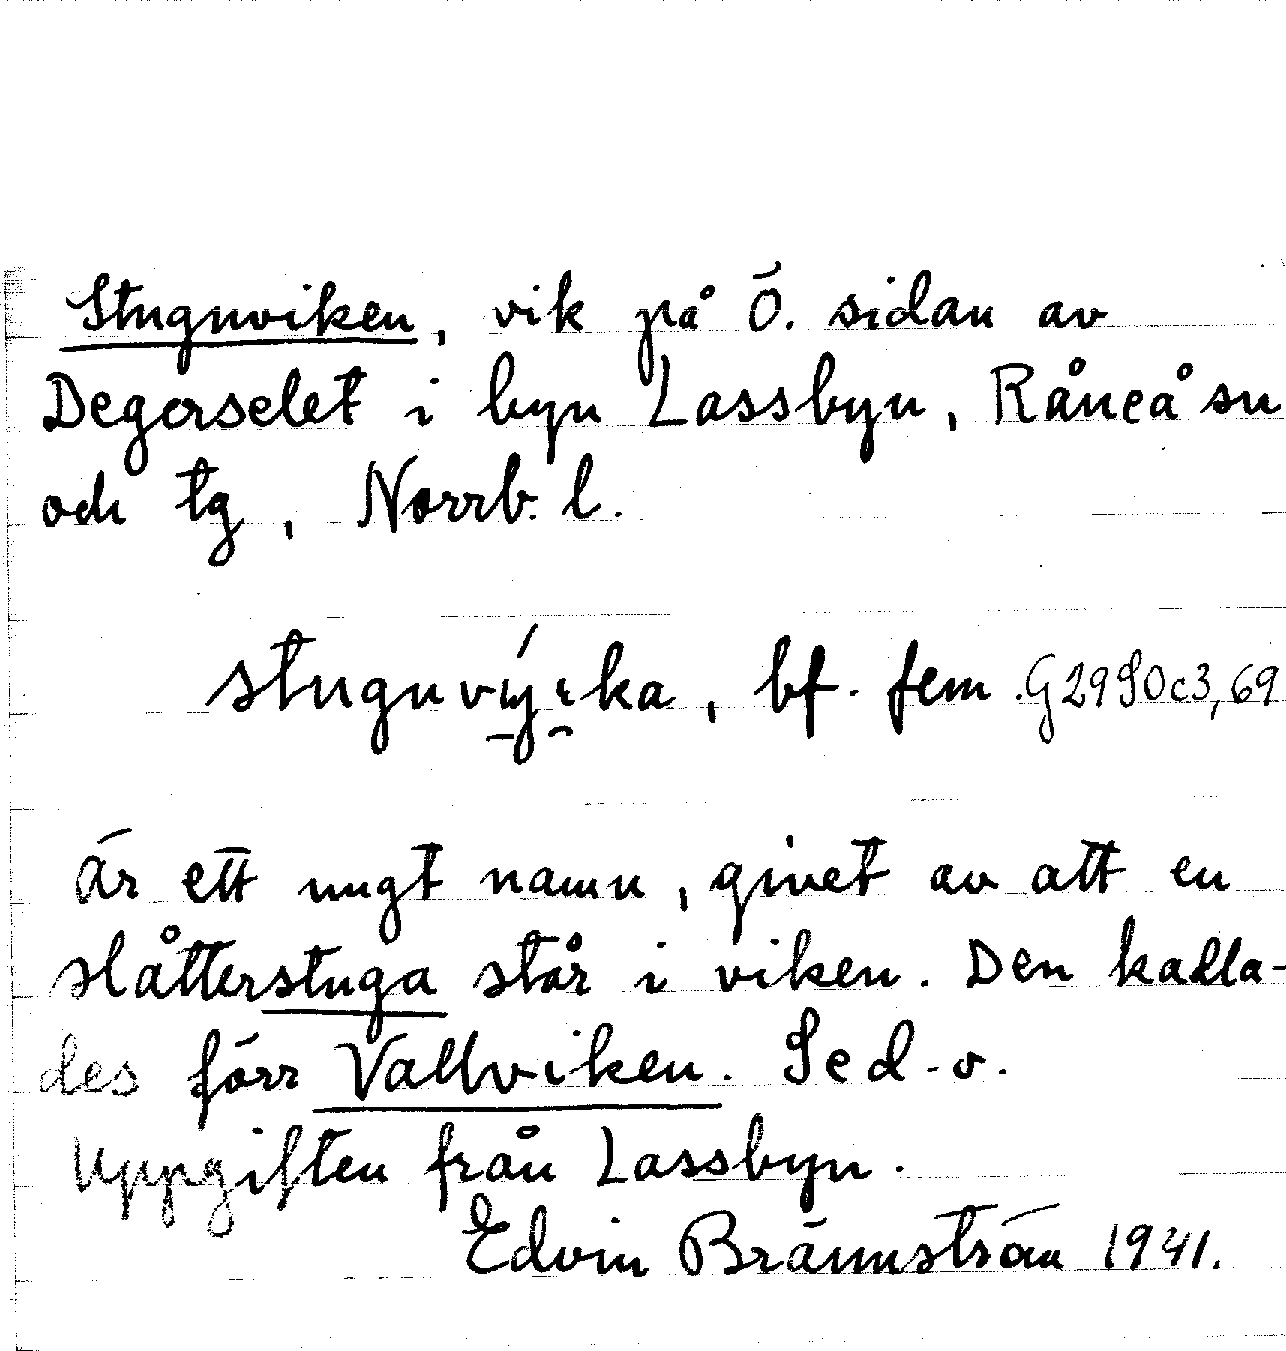 Stuguviken, vik på Ö. sidan av
Degerselet i byn Lassbyn, Råneå sn
och tg, Norrb. l.
bf. fem. G2990c3,69
är ett ungt namn, givet av att en
slåtterstuga står i viken. Den kalla-
des förr Vallviken. Se d. o.
Uppgiften från Lassbyn.
Edvin Brännström 1941.